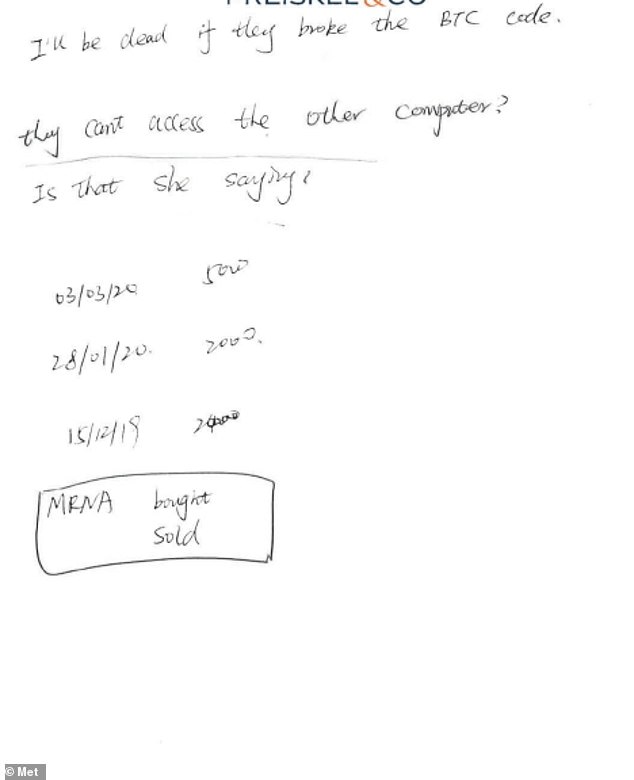 PREISKEL&CO
I'll be dead if they broke the BTC code.
they can't access the other computer?
Is that she saying?
03/03/20 5000
28/01/20. 2000.
15/12/19
MRNA bought
sold
© Met